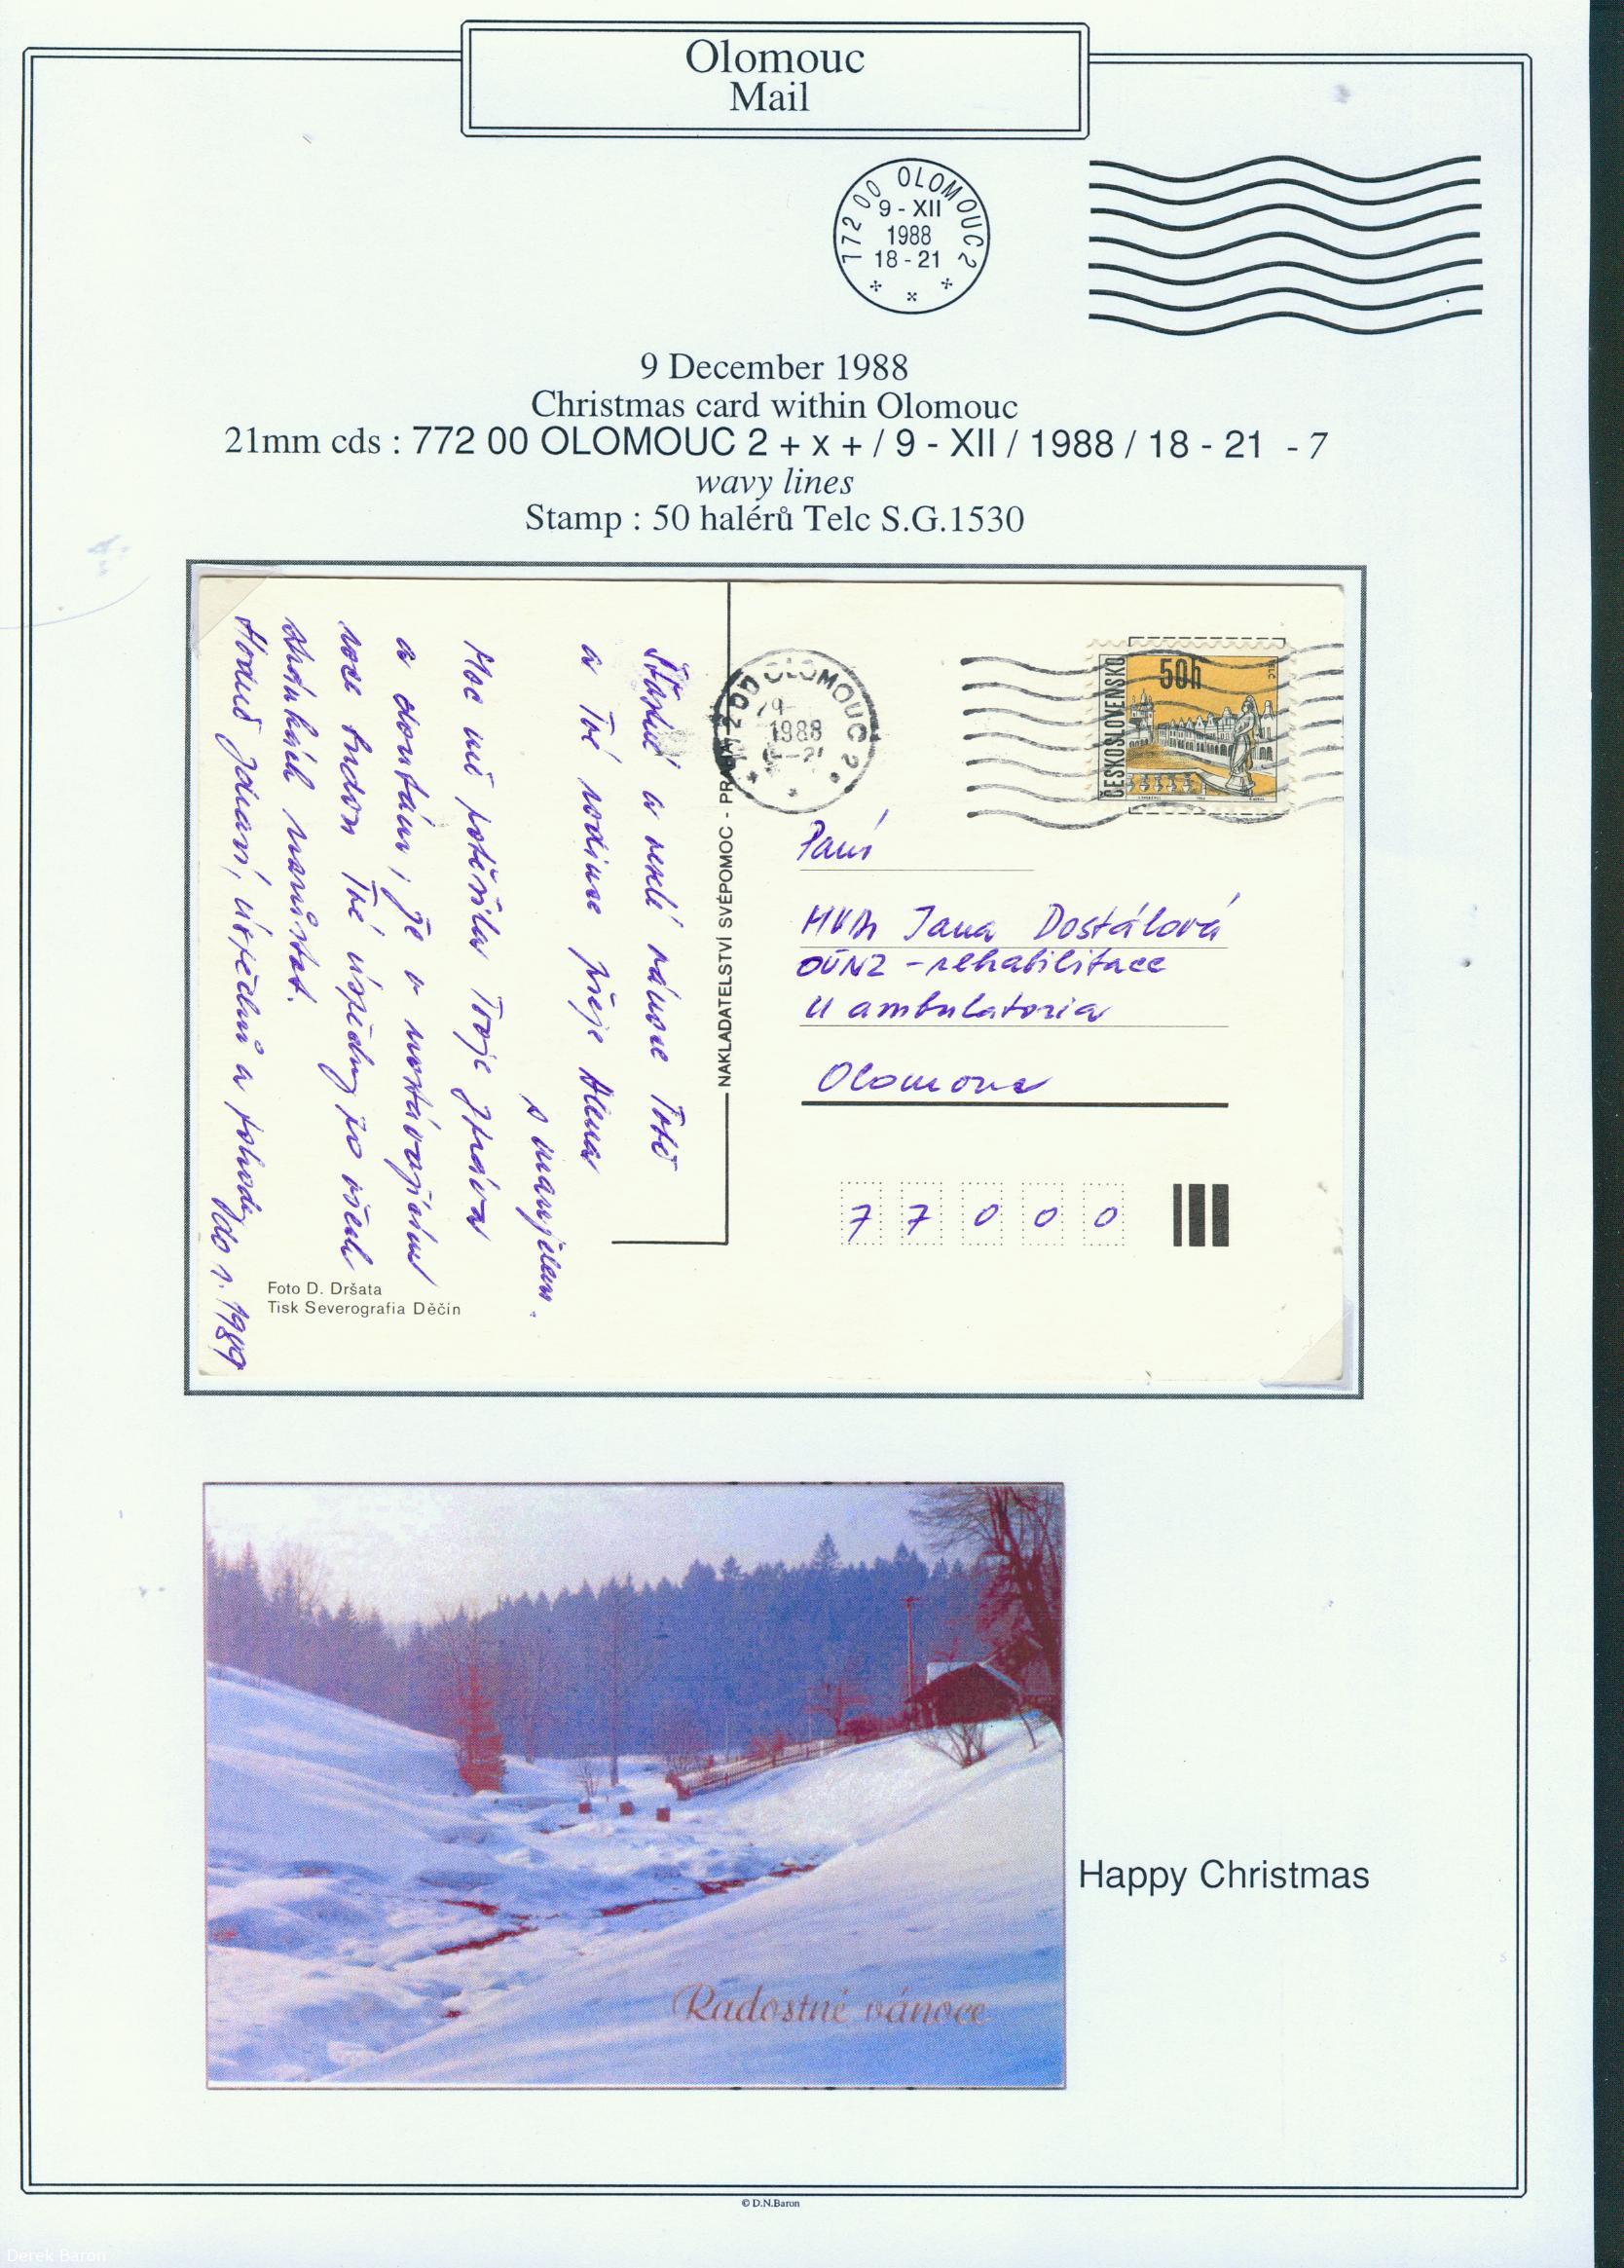 Olomouc
Mail
772 00 OLOMOUC 2
9 - XII
1988
18 - 21
9 December 1988
Christmas card within Olomouc
21mm cds : 772 00 OLOMOUC 2 + x + / 9 - XII / 1988 / 18 - 21 - 7
wavy lines
Stamp : 50 halérů Telc S.G.1530
Šťastné a veselé vánoce Tobě
a Tvé rodině přeje Alena
s manželem.
Moc mě potěšila Tvoje zpráva
a doufám, že v nastávajícím
roce budou Tvé úspěchy po všech
stránkách narůstat.
Hodně zdraví, úspěchů a pohody do r. 1989
Foto D. Dršata
Tisk Severografia Děčín
NAKLADATELSTVÍ SVÉPOMOC - PRAHA
OLOMOUC 2
1988
ČESKOSLOVENSKO
50h
TELČ
Paní
MVDr Jana Dostálová
OÚNZ - rehabilitace
U ambulatoria
Olomouc
7 7 0 0 0
Radostné vánoce
Happy Christmas
© D.N.Baron
Derek Baron